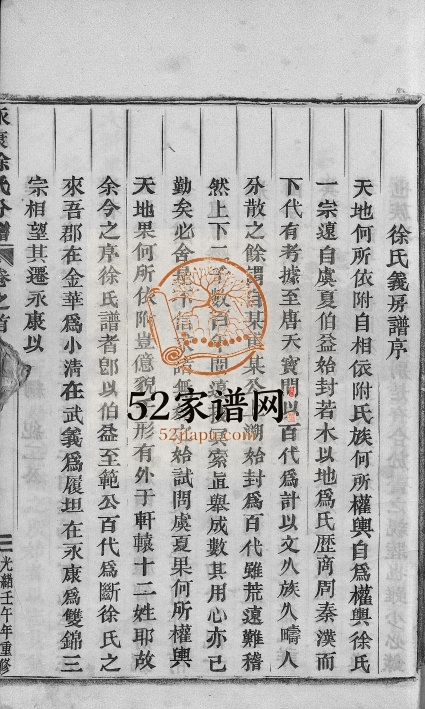 徐氏義房譜序
天地何所依附自相依附氏族何所權輿自爲權輿徐氏
一宗遠自虞夏伯益始封若木以地爲氏歷商周秦漢而
下代有考據至唐天寶間以百代爲計以文久族久疇人
分散之餘謂自某
始封爲百代雖荒遠難稽
然上下二千數百年間
索眞舉成數其用心亦已
勤矣必舍
始試問虞夏果何所權輿
天地果何所依附豈億
形有外于軒轅十二姓耶故
余今之序徐氏譜者卽以伯益至範公百代爲斷徐氏之
來吾郡在金華爲小清在武義爲履坦在永康爲雙錦三
宗相望其遷永康以
永康徐氏分譜
卷之首
光緒壬午年重修
52家谱网
52jiapu.com